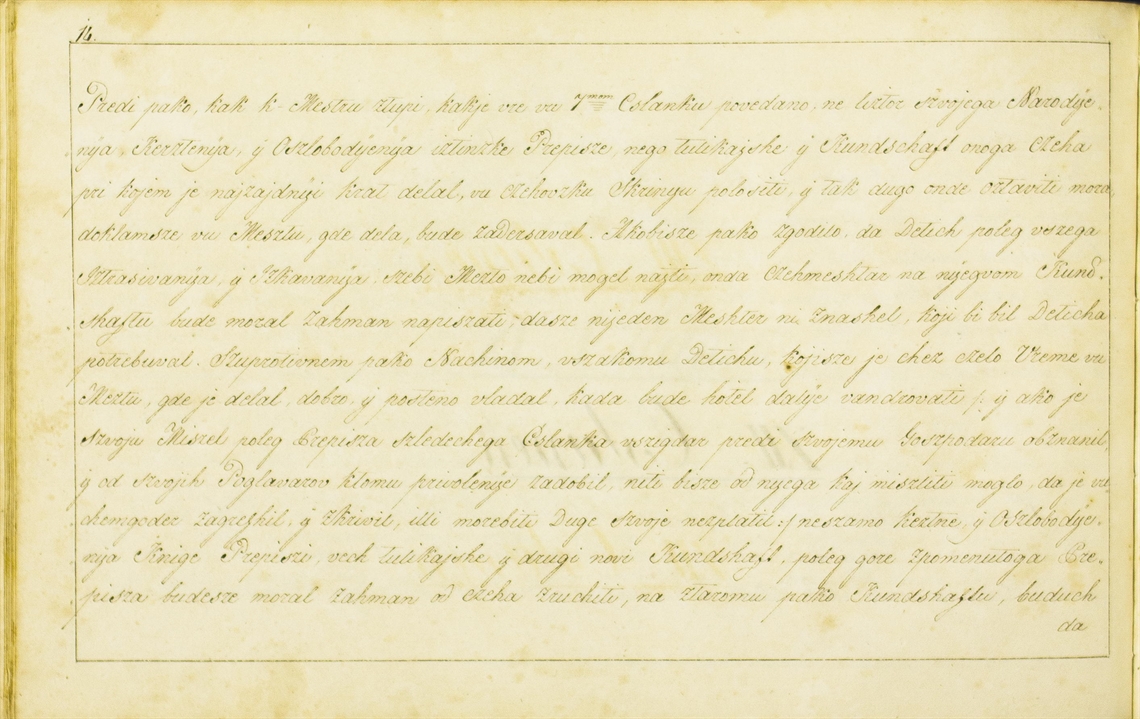 14.
Predi pako, kak k-Mestru ztupi, kakje vre vu 7mom Cslanku povedano, ne liztor szvojega Narodije-
nija, Kerztenija, ÿ Oszlobodÿenÿa iztinzke Prepisze, nego tulikajshe ÿ Kundschaft onoga Czeha
pri kojem je najzadnÿi krat delal, vu Czehovzku Skrinyu polositi, ÿ tak dugo onde oztaviti mora
doklamsze vu Mesztu, gde dela, bude zadersaval. Akobisze pako zgodilo, da Detich poleg vszega
Iztrasivanÿa, ÿ Izkavanÿa szebi Mezto nebi mogel najti, onda Czehmeshtar na nÿegvom Kund-
shaftu bude moral zahman napiszati, dasze nijeden Meshter ni znashel, koji bi bil Deticha
potrebuval. Szuprotivnem pako Nachinom, vszakomu Detichu, kojisze je chez czelo Vreme vu
Meztu, gde je delal, dobro, ÿ posteno vladal, kada bude hotel dalÿe vandrovati /: ÿ ako je
szvoju Miszel poleg Prepisza szledechega Cslanka vszigdar predi szvojemu Goszpodaru obznanil,
ÿ od szvojih Poglavarov ktomu privolenÿe zadobil, niti bisze od nÿega kaj miszliti moglo, da je vu
chemgoder zagreshil, ÿ zkrivil, illi morebiti Duge szvoje nezplatil :/ neszamo kerztne, ÿ Oszlobodÿe-
nja Knige Prepiszi, vech tulikajshe ÿ drugi novi Kundshaft, poleg gore zpomenutoga Pre-
pisza budesze moral zahman od Czeha zruchiti, na ztaromu pako Kundshaftu, buduch
da